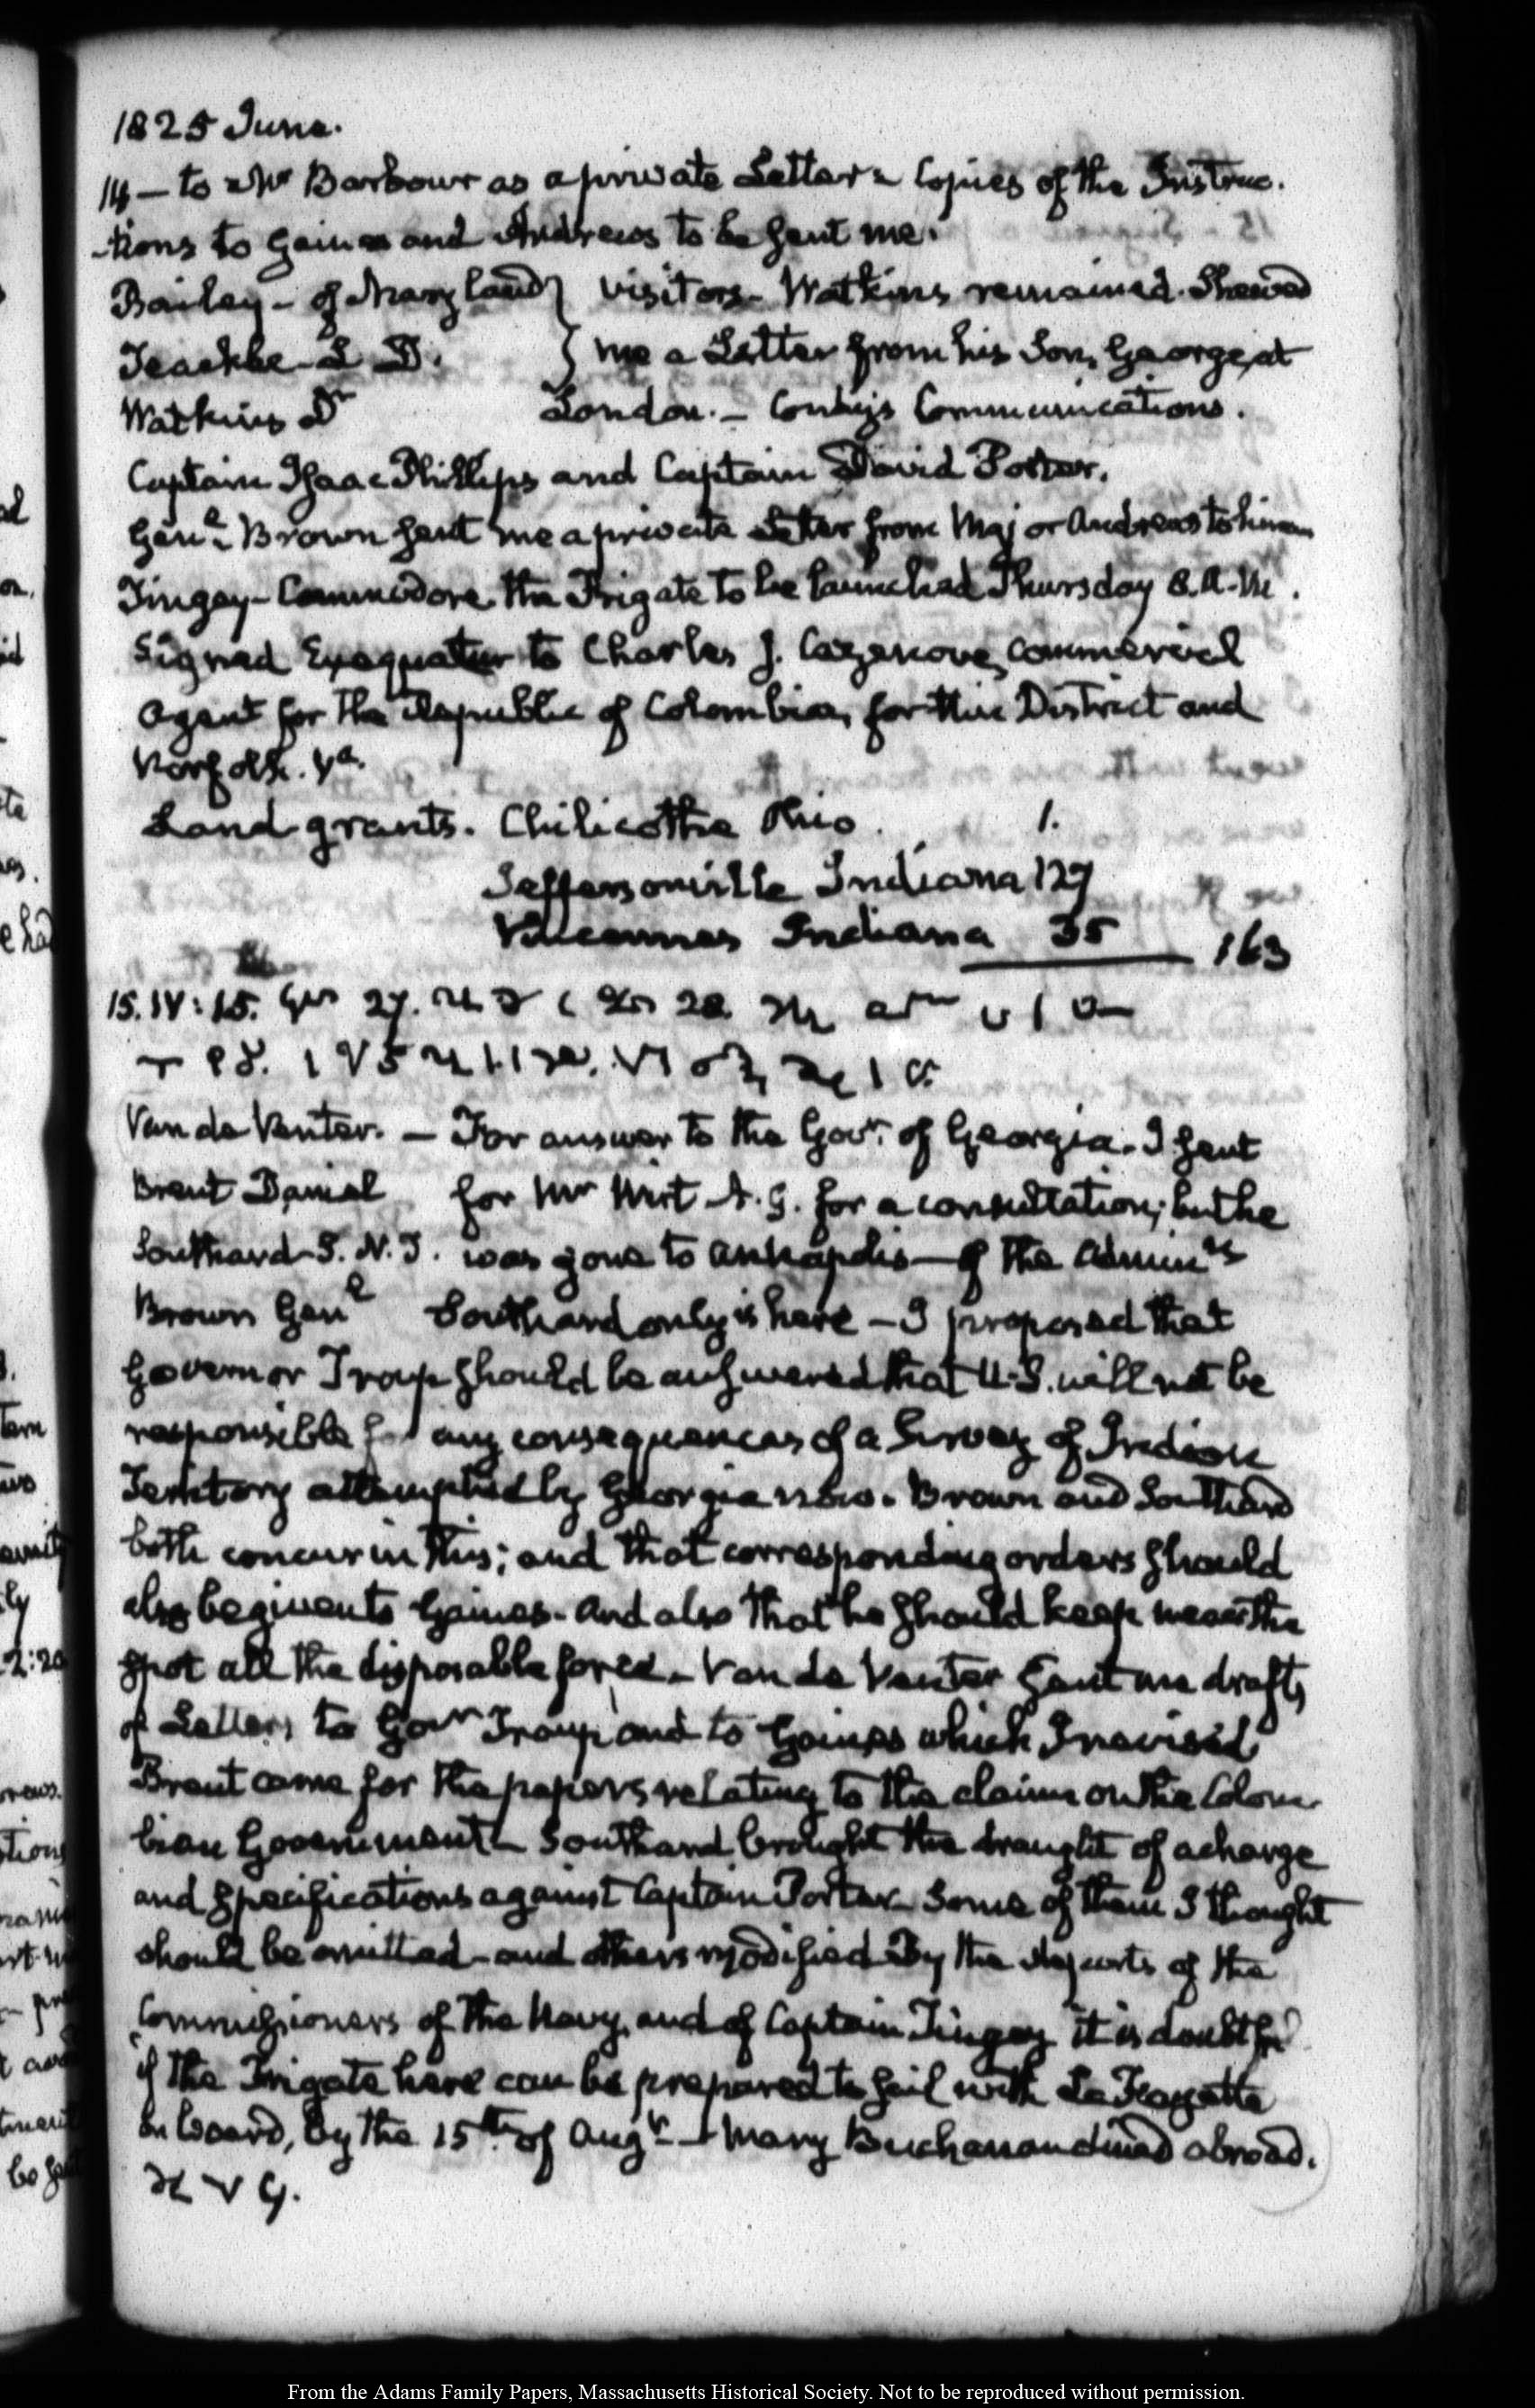 1825 June.
14 — to Mr Barbour as a private Letter — Copies of the Instruc-
-tions to Gaines and Andrews to be sent me.
Bailey — of Maryland } visitors — Watkins remained. Shewed
Teackle L D. } me a Letter from his Son, George, at
Watkins Dr London. — Communications.
Captain Isaac Phillips and Captain David Porter.
Genl Brown sent me a private Letter from Major Andrews to him
Tingey — Commodore. the Frigate to be launched Thursday 8. A.M.
Signed Exequatur to Charles J. Cazenove, Commercial
Agent for the Republic of Colombia, for this District and
Norfolk. Va.
Land grants. Chilicothe Ohio. 1.
Jeffersonville Indiana 127
Vincennes Indiana 35 163
15. IV: 15. 27. 28.
Van de Venter. — For answer to the Govr. of Georgia. I sent
Brent Daniel for Mr Wirt A. G. for a consultation; but he
Southard S. N. was gone to Annapolis — of the Adminn
Brown Genl Southard only is here — I proposed that
Governor Troup should be answered that U.S. will not be
responsible for any consequences of a Survey of Indian
Territory attempted by Georgia now. Brown and Southard
both concur in this; and that corresponding orders should
also be given to Gaines. And also that he should keep near the
spot all the disposable force. Van de Venter sent me drafts
of Letters to Govr Troup, and to Gaines which I revised
Brent came for the papers relating to the claims on the Colom-
bian Government — Southard brought the draught of a charge
and specifications against Captain Porter — Some of them I thought
should be omitted — and others modified — By the Reports of the
Commissioners of the Navy, and of Captain Tingey it is doubtful
if the Frigate here can be prepared to sail with La Fayette
on board, by the 15th of Augt. — Mary Buchanan dined abroad.